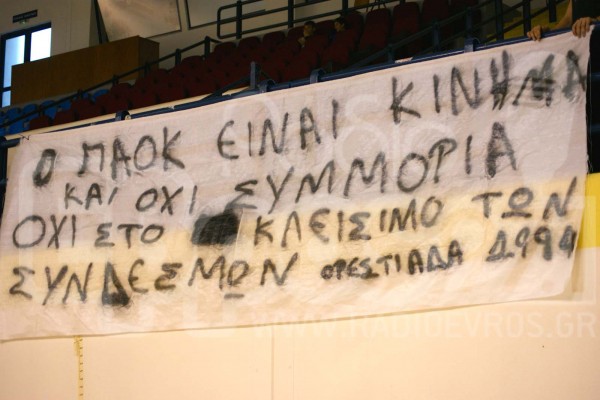 Ο ΠΑΟΚ ΕΙΝΑΙ ΚΙΝΗΜΑ
ΚΑΙ ΟΧΙ ΣΥΜΜΟΡΙΑ
ΟΧΙ ΣΤΟ ΚΛΕΙΣΙΜΟ ΤΩΝ
ΣΥΝΔΕΣΜΩΝ ΟΡΕΣΤΙΑΔΑ 1994
WWW.RADIOEVROS.GR